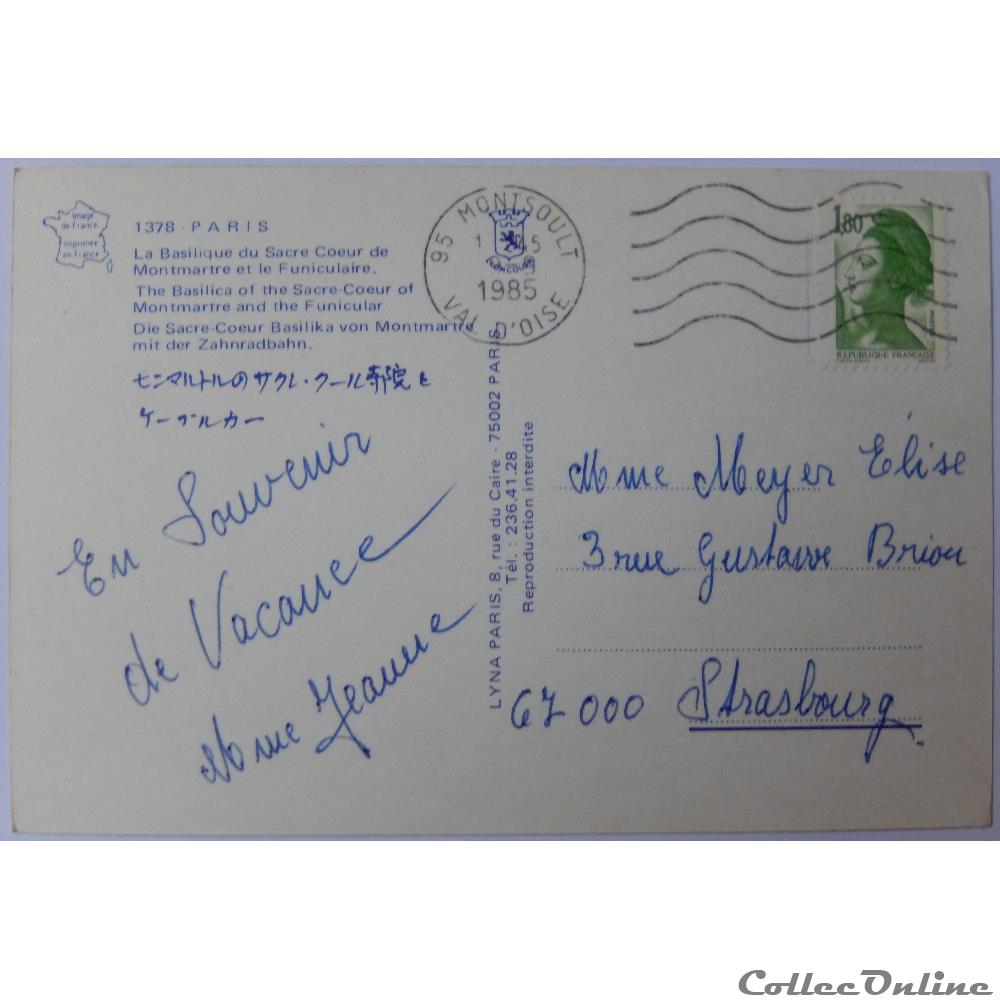 Image
de France
Imprimée
en France
1378 - PARIS
La Basilique du Sacre Coeur de
Montmartre et le Funiculaire.
The Basilica of the Sacre-Coeur of
Montmartre and the Funicular
Die Sacre-Coeur Basilika von Montmartre
mit der Zahnradbahn.
モンマルトルのサクレ・クール寺院と
ケーブルカー
En Souvenir
de Vacance
Mme Jeanne
LYNA PARIS, 8, rue du Caire - 75002 PARIS
Tél. : 236.41.28
Reproduction interdite
95 MONTSOULT
1985
VAL D'OISE
1,80
REPUBLIQUE FRANÇAISE
Mme Meyer Élise
3 rue Gustave Brion
67 000 Strasbourg
CollecOnline